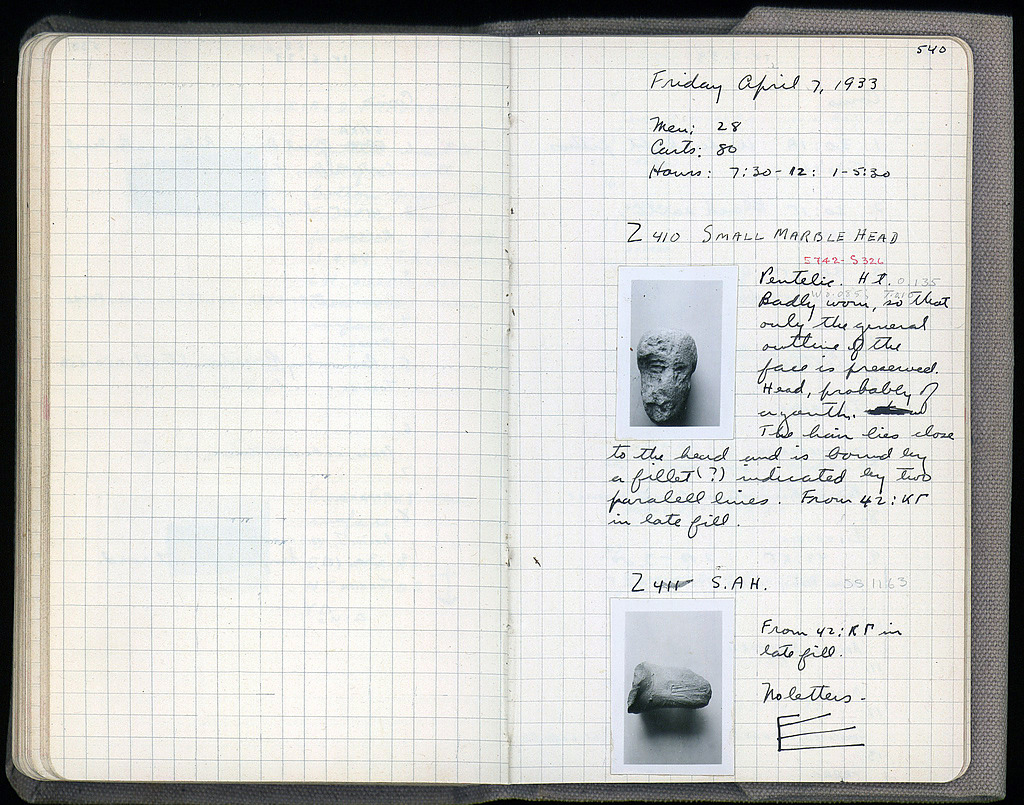 540
Friday April 7, 1933
Men: 28
Carts: 80
Hours: 7:30-12: 1-5:30
Z 410 SMALL MARBLE HEAD
5742-S 326
Pentelic. Ht. 0.135
Badly worn, so that
only the general
outline of the
face is preserved.
Head, probably of
a youth.
The hair lies close
to the head and is bound by
a fillet(?) indicated by two
paralell lines. From 42:ΚΓ
in late fill.
Z 411 S.A.H.
SS 1163
From 42:ΚΓ in
late fill.
No letters.